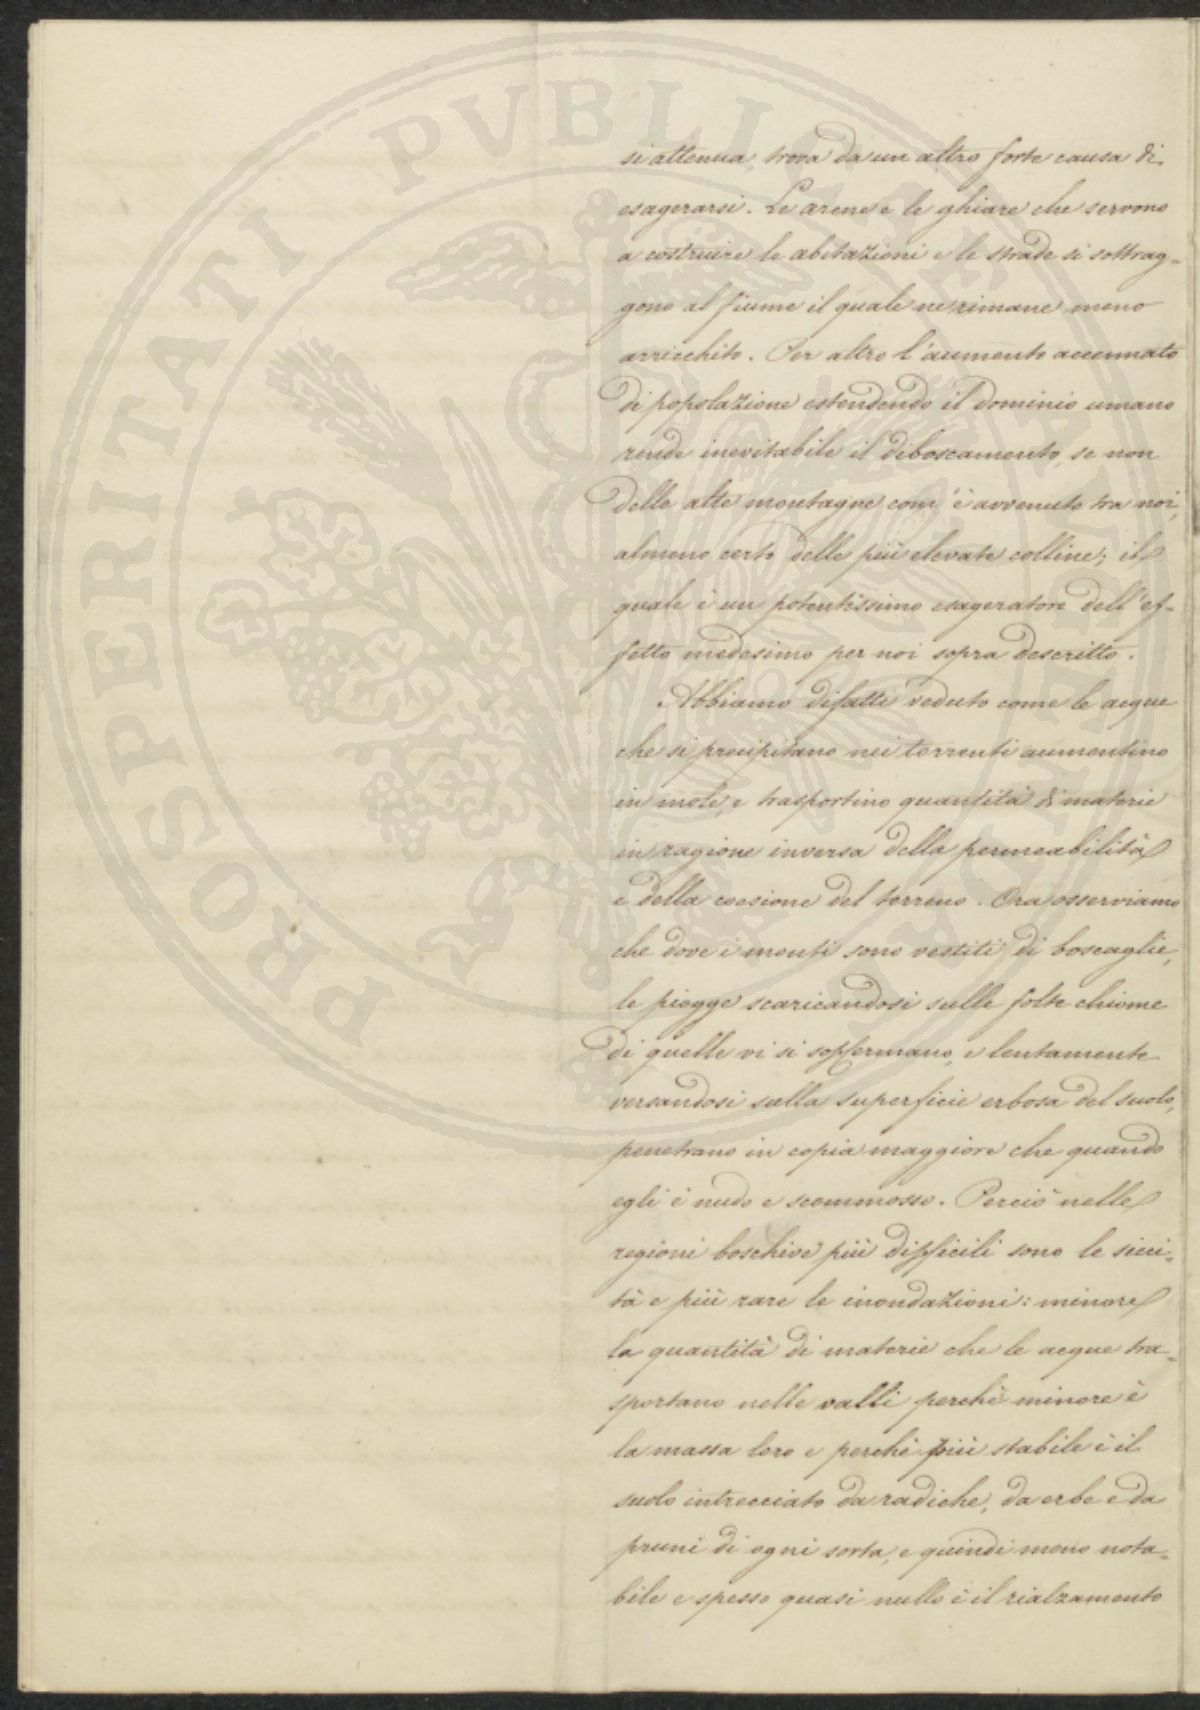 PROSPERITATI PVBLICAE
si attenua, trova da un altro forte causa di
esagerarsi. Le arene e le ghiare che servono
a costruire le abitazioni e le strade si sottrag-
gono al fiume il quale ne rimane meno
arricchito. Per altro l'aumento accennato
di popolazione estendendo il dominio umano
rende inevitabile il diboscamento, se non
delle alte montagne com'è avvenuto tra noi,
almeno certo delle più elevate colline; il
quale è un potentissimo esageratore dell'ef-
fetto medesimo per noi sopra descritto.
Abbiamo difatti veduto come le acque
che si precipitano nei torrenti aumentino
in mole, e trasportino quantità di materie
in ragione inversa della permeabilità
e della coesione del terreno. Ora osserviamo
che dove i monti sono vestiti di boscaglie,
le piogge scaricandosi sulle folte chiome
di quelle vi si soffermano, e lentamente
versandosi sulla superficie erbosa del suolo,
penetrano in copia maggiore che quando
egli è nudo e scommosso. Perciò nelle
regioni boschive più difficili sono le sicci-
tà e più rare le inondazioni: minore
la quantità di materie che le acque tra-
sportano nelle valli perchè minore è
la massa loro e perchè più stabile è il
suolo intrecciato da radiche, da erbe e da
pruni di ogni sorta, e quindi meno nota-
bile e spesso quasi nullo è il rialzamento